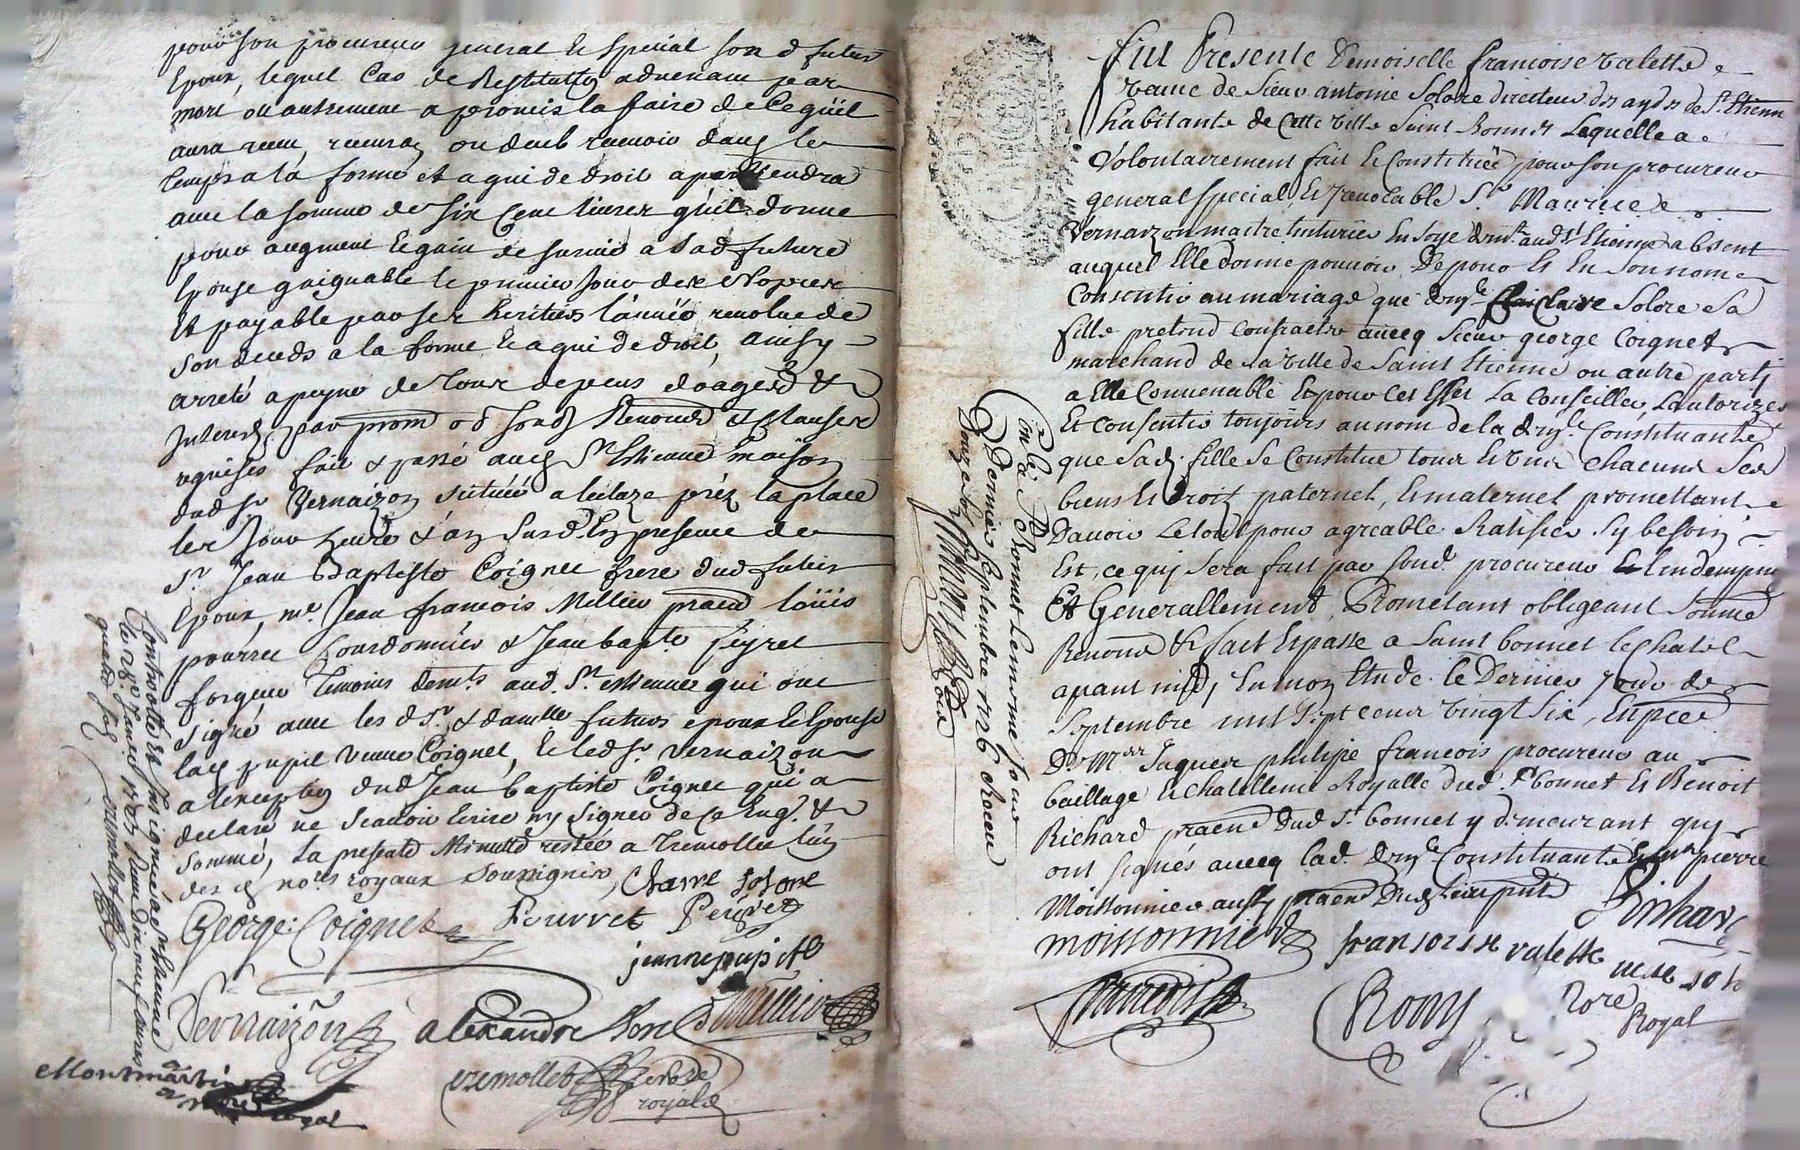 pour son procureur general & special son d futur
Epoux, lequel Cas de Restitution advenant par
mort ou autrement a promis la faire de ce qu'il
aura receu, recevra ou deub recevoir dans le
temps a la forme et a qui de droit apartiendra
avec la somme de six Cent livres qu'il donne
pour augment & gain de survie a sad future
Epouse gaignable le premier jour de
Et payable par ses heritiers l'année revolue de
son deceds a la forme & a qui de droit, ainsy
arreté a peyne de tous depens domages &
Interests par prom ob Renoncé & Clauses
requises fait & passé aud St Estienne maison
dud sr Vernaizon scituée prez la place
les Jour heure & an susd. En presence de
Sr Jean Baptiste Coignet frere dud futur
Epoux, me. Jean françois Mellier praen louis
pourret Courdonnier & Jean bapte peyret
forgeur Temoins demts aud. St estienne qui ont
signé avec les d sr & damlle futurs epoux & Epouse
lad pupil veuve Coignet, & led sr. vernaizon
a l'exception dud Jean baptiste Coignet qui a
declaré ne scavoir écrire ny signer de ce Enq. &
sommé, La presente Minutte restée a Tremollet l'un
des d. nores royaux soussignés, Claire Solore
George Coignet Pourret Peyret
jeanne pupil
Vernaizon alexandre Mellier
Montmartin
nore royal
tremollet nore
royal
Controllé à St Estienne
le 28e.
quatre
tremollet
Fut Presente Demoiselle francoise valette
veuve de Sieur antoine Solore directeur des aydes de St. Etienne
habitante de cette ville Saint Bonnet Laquelle a
Volontairement fait & Constitué pour son procureur
general special & Irrevocable Sr. Maurice
Vernaizon maitre tinturier En soye demt. aud St Etienne absent
auquel Elle donne pouvoir De pour Et En son nom
Consentir au mariage que demlle Claire Solore sa
fille pretend contracter avecq Sieur george Coignet
marchand de la ville de Saint Etienne ou autre party
a Elle Convenable Et pour Cet Effet La Conseiller, Lautorizer
Et consentir toujours au nom de la demlle. Constituante
que Sad. fille Se Constitue tous Et uns Chacuns Ses
biens Et Droit paternel, & maternel promettant
Davoir Le tout pour agreable Ratifier Sy besoin
Est, ce quy Sera fait par Sond. procureur & Lindempner
Et Generallement, Prometant obligeant Soumé
Renoncé & fait & passé a Saint bonnet le Chatel
apant midy En mon Etude le Dernier Jour de
Septembre mil Sept cent vingt Six, En pree
De Mr Jaques philipe francois procureur au
baillage & chatellenie Royalle dud. St bonnet & Benoit
Richard praen Dud St bonnet y demeurant quy
ont signés avecq lad. demlle Constituante pierre
Moissonnier aussy praen Dud
moissonnier francoise valette veve solo Richard
francois Rony nore
Royal
Con.lé a St Bonnet Le mesme Jour
Dernier Septembre 1726
Douze sols